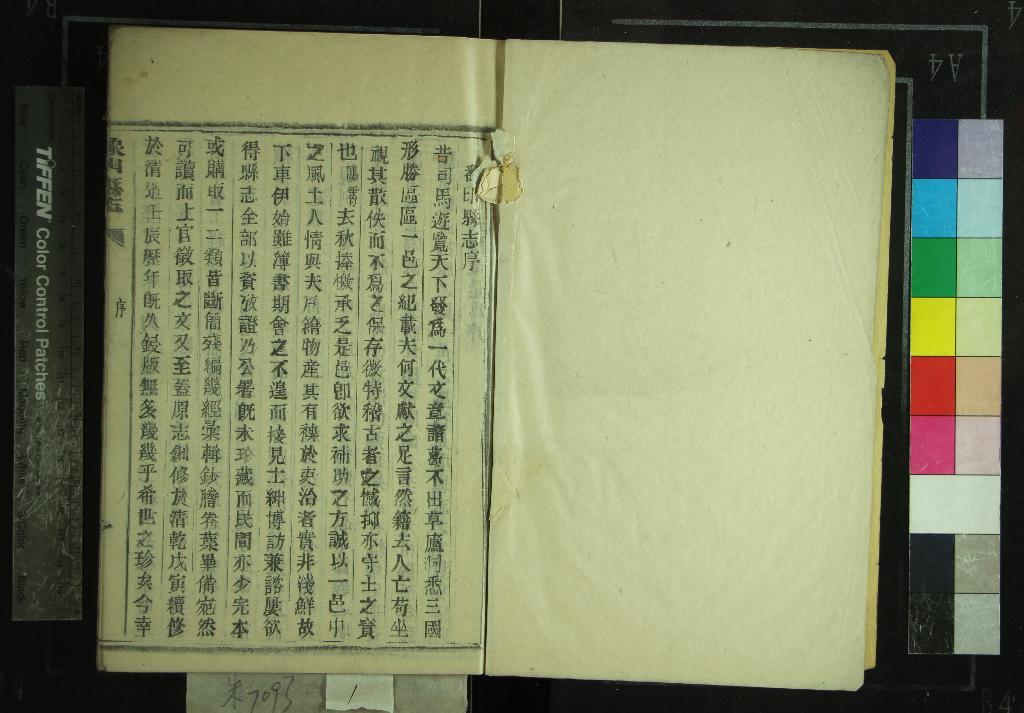 縣志序
昔司馬遊覽天下發為一代文章諸葛不出草廬洞悉三國
形勝區區一邑之紀載夫何文獻之足言然籍去人亡苟坐
視其散佚而不為之保存微特稽古者之憾抑亦守土之責
也 去秋捧檄承乏是邑即欲求補助之方誠以一邑中
之風土人情與夫戶籍物產其有裨於吏治者實非淺鮮故
下車伊始雖簿書期會之不遑而接見士紳博訪兼諮屢欲
得縣志全部以資攷證乃公署既未珍藏而民間亦少完本
或購取一二類皆斷簡殘編幾經彙輯鈔謄卷葉畢備宛然
可讀而上官徵取之文又至蓋原志創修於清乾戊寅續修
於清道壬辰歷年既久鋟版無多幾幾乎希世之珍矣今幸
象山縣志
序
TIFFEN Color Control Patches
Blue Cyan Green Yellow Red Magenta White 3/Color Black
A4
朱7093
1